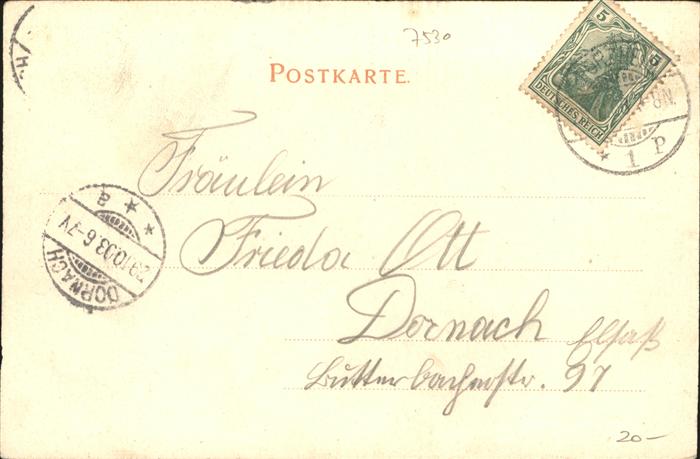 7530
POSTKARTE.
5
5
DEUTSCHES REICH
8N.
* 1 P
Fräulein
Frieda Ott
Dornach Elsaß
Lutterbacherstr. 97
DORNACH
29.10.03.6-7V
* * a
20-